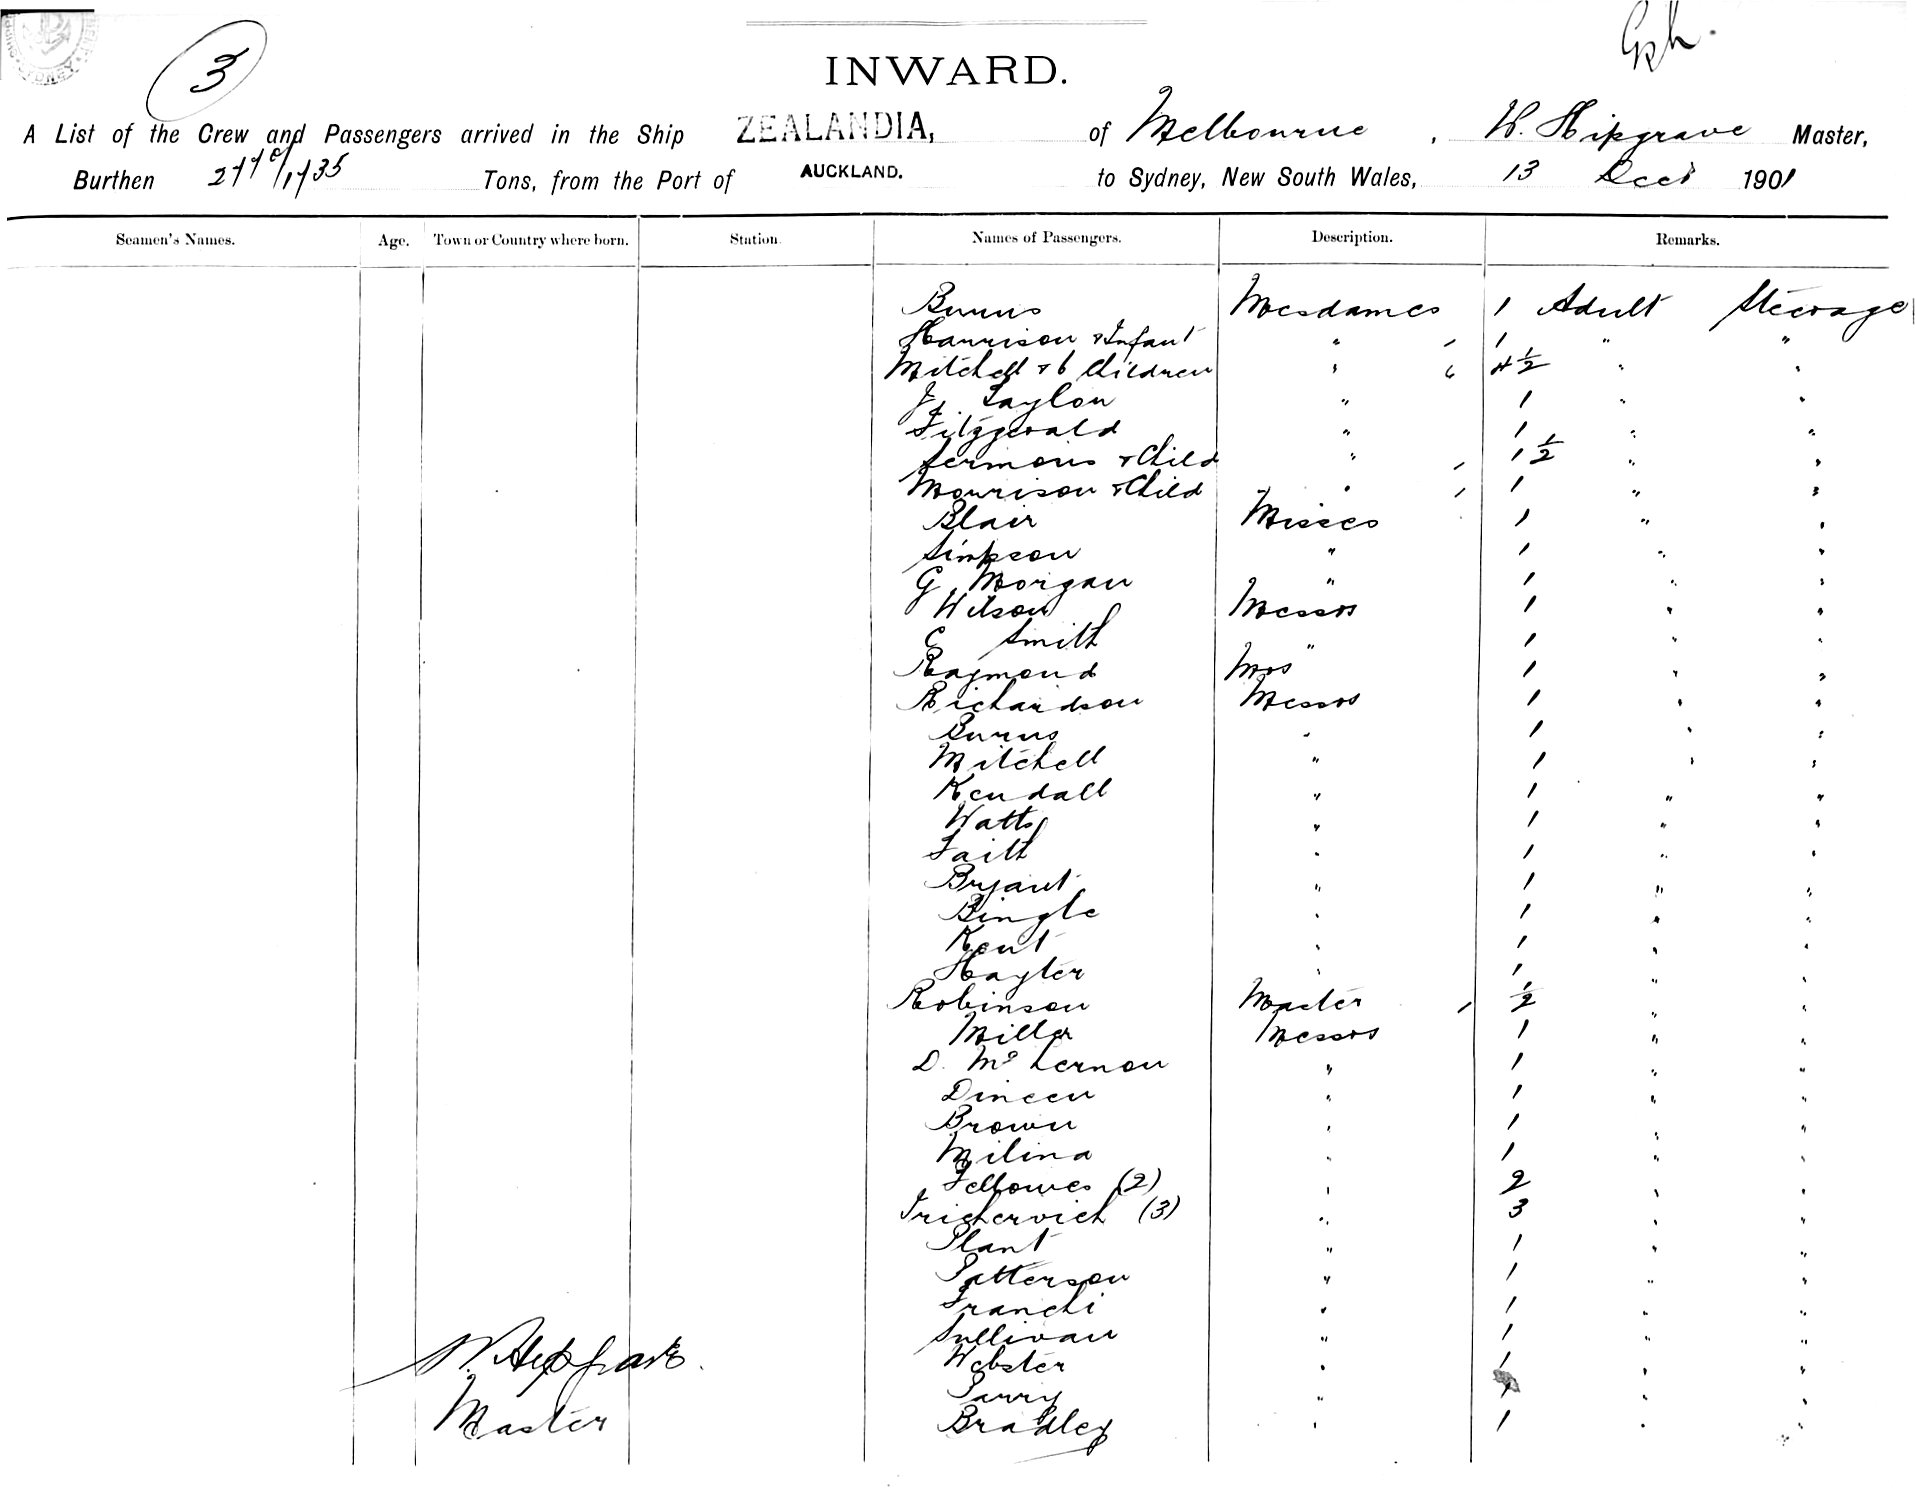 3
INWARD.
A List of the Crew and Passengers arrived in the Ship ZEALANDIA, of Melbourne, W. Hipgrave Master,
Burthen Tons, from the Port of AUCKLAND. to Sydney, New South Wales, 13 Decr 1901
Seamen's Names. Age. Town or Country where born. Station. Names of Passengers. Description. Remarks.
Burns Mesdames 1 Adult Steerage
Harrison & Infant " 1 1 " "
Mitchell & 6 Children " 6 4 1/2 " "
J. Taylor " 1 " "
Fitzgerald " 1 " "
Sermons & Child " 1 1 1/2 " "
Morrison & Child " 1 1 " "
Blair Misses 1 " "
Simpson " 1 " "
G. Morgan " 1 " "
Wilson Messrs 1 " "
C Smith " 1 " "
Raymond Mrs 1 " "
Richardson Messrs 1 " "
Burns " 1 " "
Mitchell " 1 " "
Kendall " 1 " "
Watts " 1 " "
Faith " 1 " "
Bryant " 1 " "
Bingle " 1 " "
Kent " 1 " "
Hayter " 1 " "
Robinson Master 1 1/2 " "
Miller Messrs 1 " "
D. Mc Lernon " 1 " "
Dineen " 1 " "
Brown " 1 " "
Milina " 1 " "
Fellowes (2) " 2 " "
Trichervich (3) " 3 " "
Plant " 1 " "
Patterson " 1 " "
Franchi " 1 " "
Sullivan " 1 " "
Webster " 1 " "
Parry " 1 " "
Bradley " 1 " "
W. Hipgrave.
Master